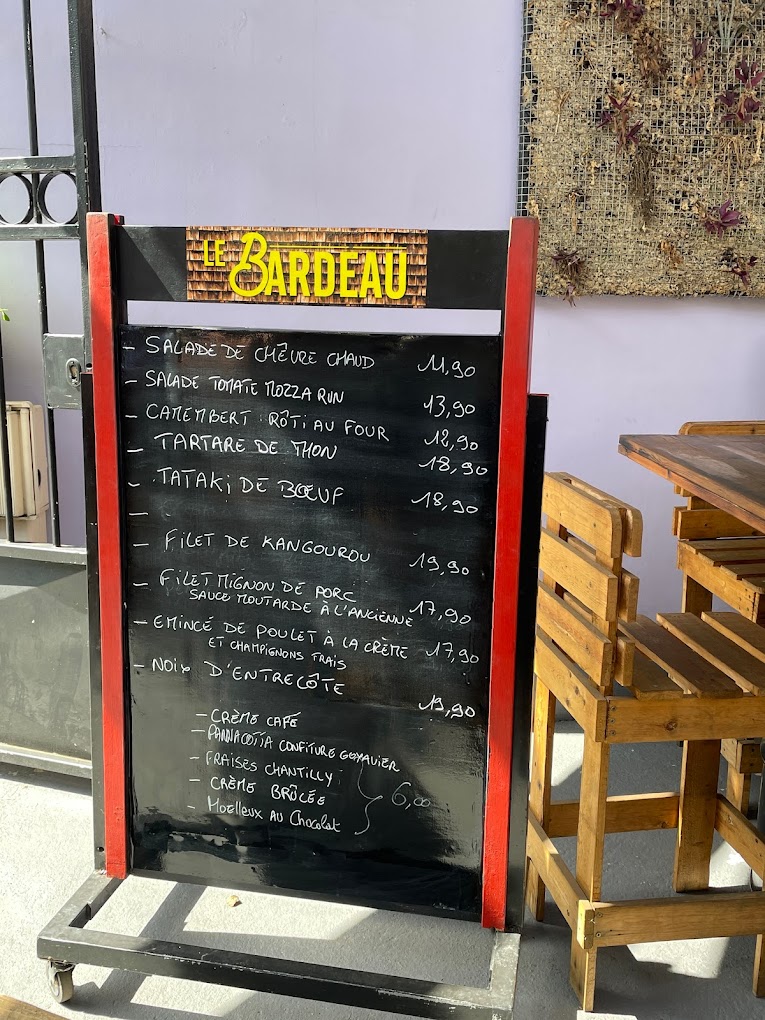 LE BARDEAU
- SALADE DE CHÊVRE CHAUD 11,90
- SALADE TOMATE MOZZA RUN 13,90
- CAMEMBERT RÔTI AU FOUR 12,90
- TARTARE DE THON 18,90
- TATAKI DE BŒUF 18,90
-
- FILET DE KANGOUROU 19,90
- FILET MIGNON DE PORC
SAUCE MOUTARDE À L'ANCIENNE 17,90
- EMINCÉ DE POULET À LA CRÈME 17,90
ET CHAMPIGNONS FRAIS
- NOIX D'ENTRECÔTE 19,90
- CRÈME CAFÉ
- PANNACOTTA CONFITURE GOYAVIER
- FRAISES CHANTILLY
- CRÈME BRÛLÉE 6,00
- MOELLEUX AU CHOCOLAT